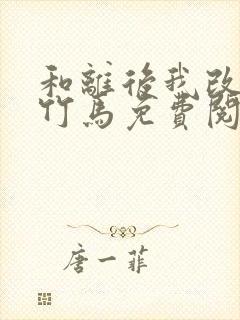 和離後我改
竹馬免費閱
唐一菲